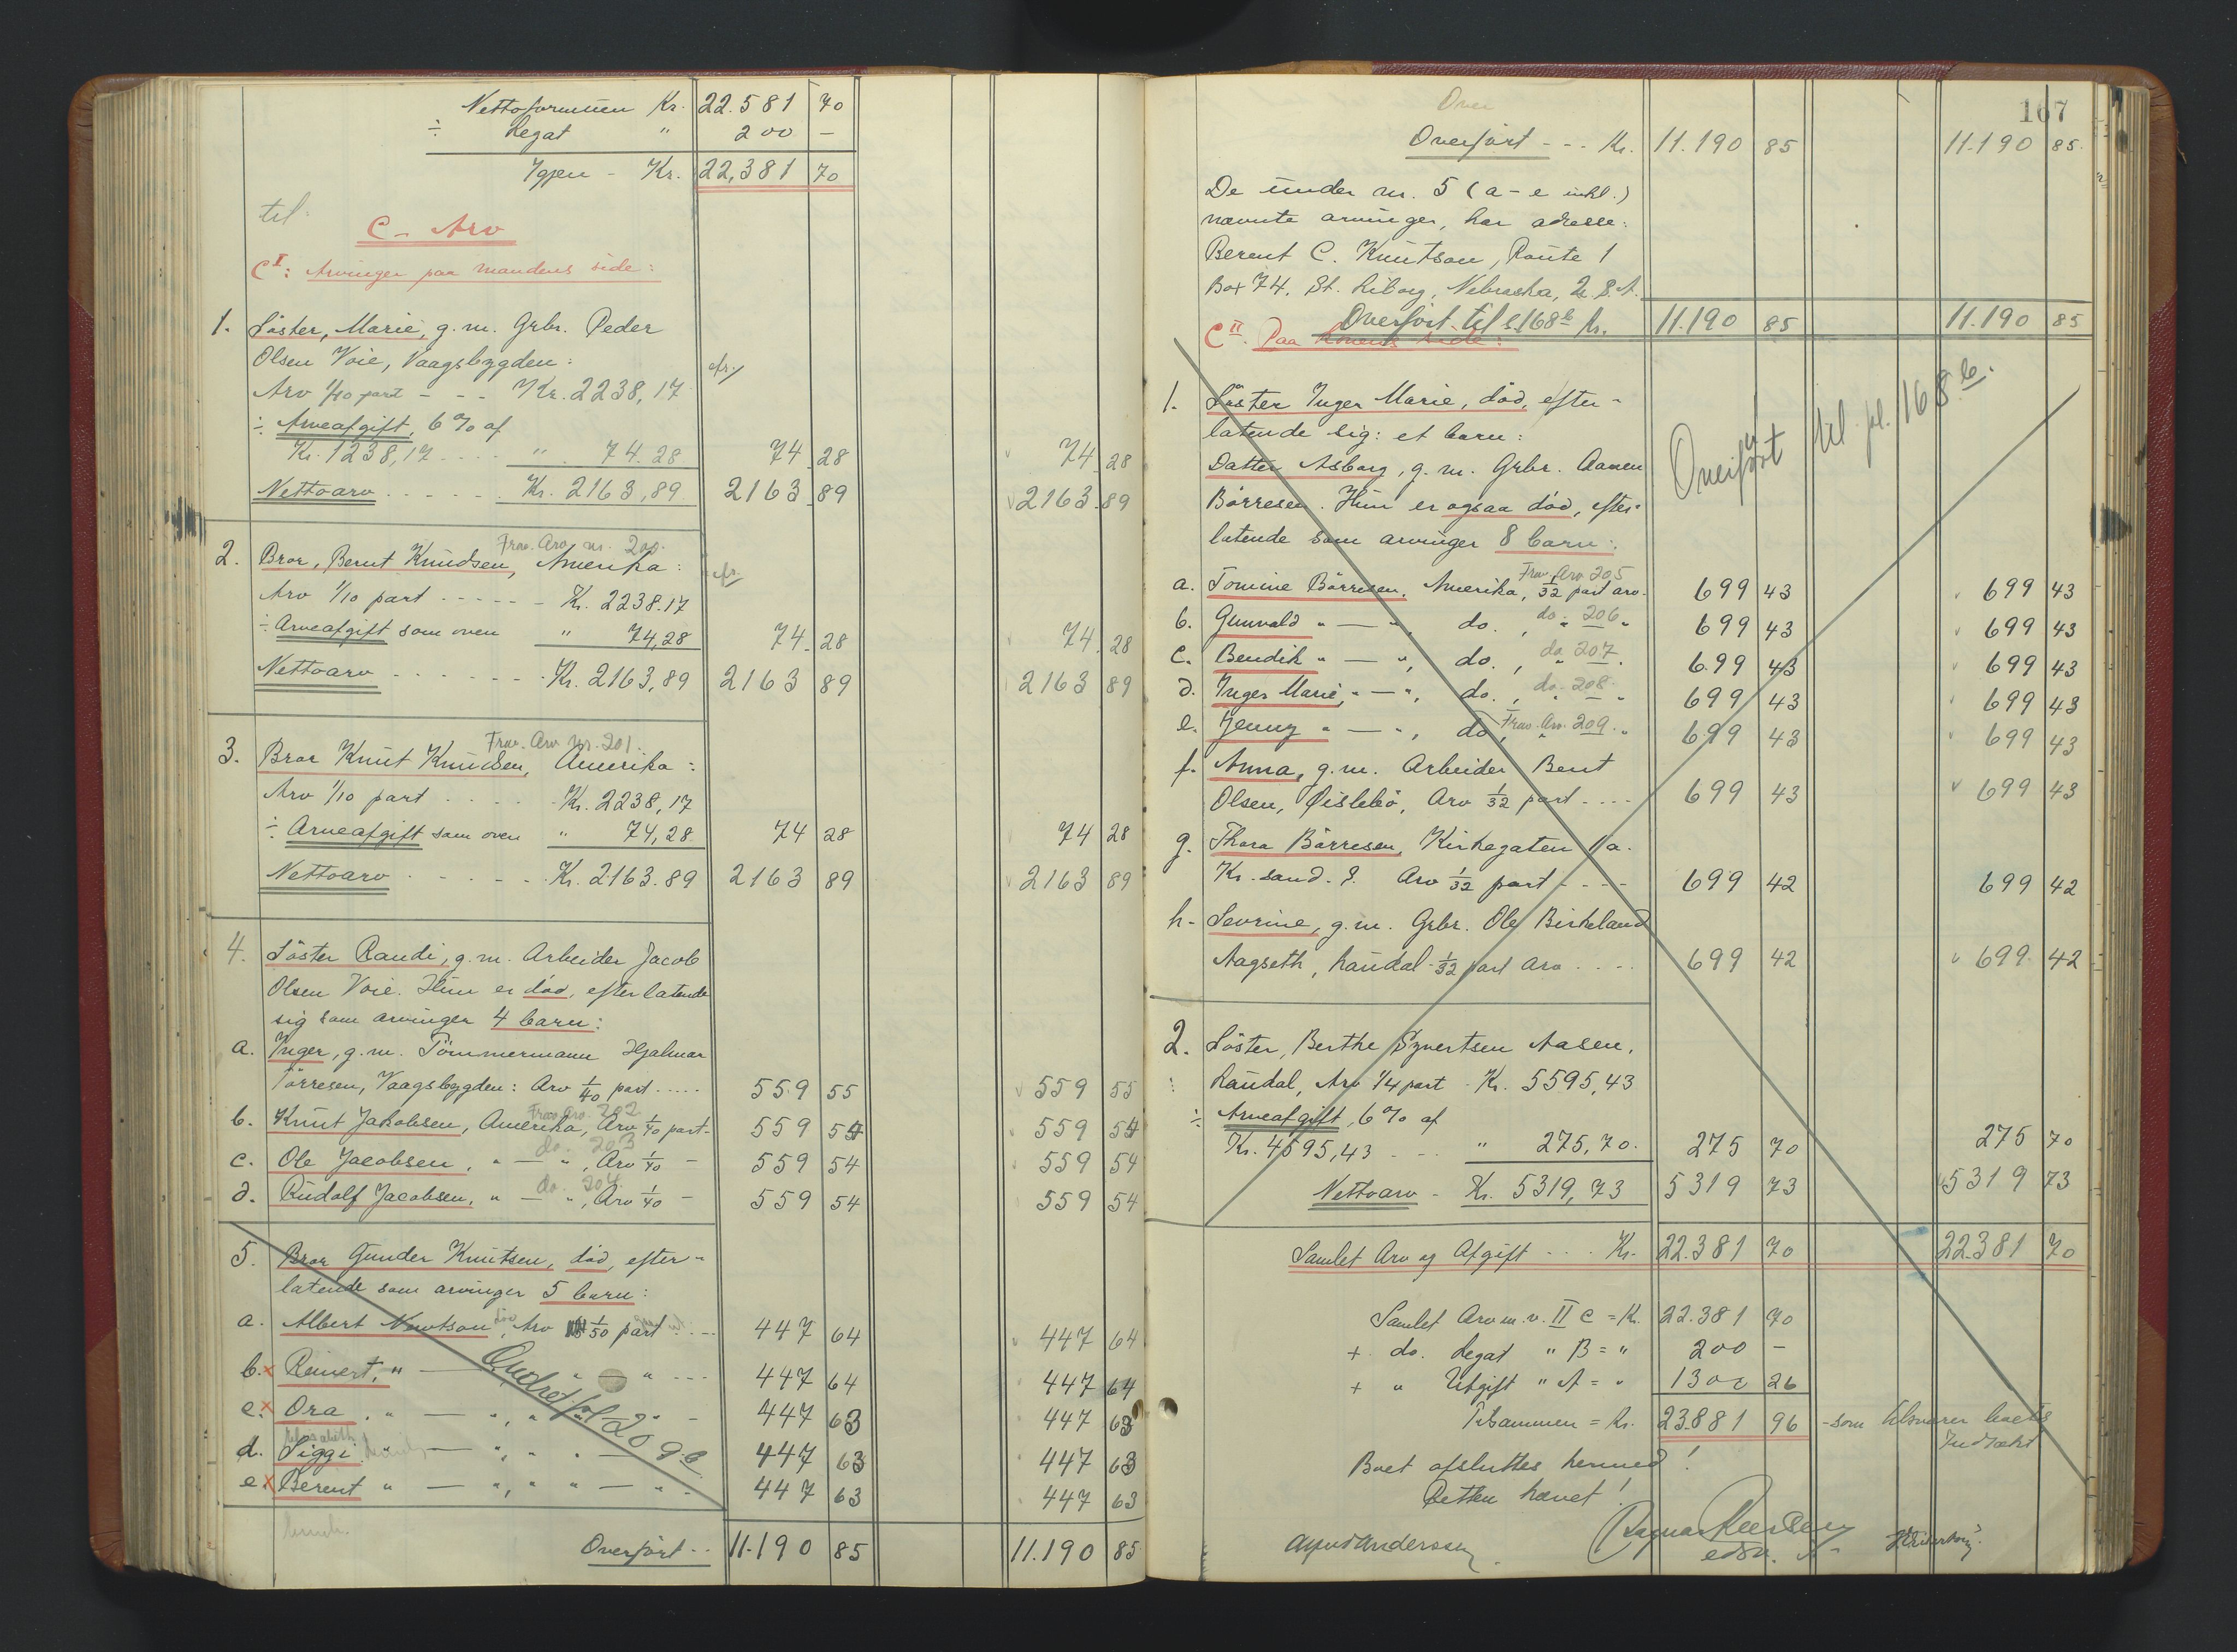 Nettoformuen Kr. 22.581 70
÷ Legat " 200 –
Igjen - Kr. 22,381 70
til
C - Arv
C I: Arvinger paa mandens side:
1. Söster, Marie, g.m. Grbr. Peder
Olsen Voie, Vaagsbygden:
Arv 1/10 part - - - Kr. 2238,17
÷ Arveafgift, 6 % af
Kr. 1238,17 .... " 74.28 74 28 74 28
Nettoarv ...... Kr. 2163,89 2163 89 2163 89
Frav. Arv nr. 200.
2. Bror, Bernt Knudsen, Amerika:
Arv 1/10 part ----- Kr. 2238.17
÷ Arveafgift som oven " 74,28 74 28 74 28
Nettoarv ....... Kr. 2163,89 2163 89 2163 89
Frav. Arv nr. 201.
3. Bror Knut Knudsen, Amerika:
Arv 1/10 part ..... Kr. 2238,17
÷ Arveafgift som oven " 74,28 74 28 74 28
Nettoarv ...... Kr. 2163.89 2163 89 2163 89
4. Söster Randi, g.m. Arbeider Jacob
Olsen Voie. Hun er död, efterlatende
sig som arvinger 4 barn:
a. Inger, g.m. Tömmermann Hjalmar
Törresen, Vaagsbygden: Arv 1/40 part ..... 559 55 559 55
Frav. Arv. 202
b. Knut Jakobsen, Amerika, Arv 1/40 part- 559 54 559 54
do. 203
c. Ole Jacobsen, " — ", Arv 1/40 - 559 54 559 54
do. 204
d. Rudolf Jacobsen, " — ", Arv 1/40 - 559 54 559 54
5. Bror Gunder Knutsen, död, efter-
latende som arvinger 5 barn:
a. Albert Knutson, död Arv 1/50 part ... 447 64 447 64
b. x Reinert, " — " — " --- 447 64 447 64
c. x Ora, " — ", " — " - 447 63 447 63
Elisabeth
d. Siggi " — ", " — 447 63 447 63
e. x Berent " — ", " " — " . 447 63 447 63
Endret fol 209 b
Overført .. 11.190 85 11.190 85
167
Over
Overført - - - Kr. 11.190 85 11.190 85
De under nr. 5 (a - e inkl.)
nævnte arvinger, har adresse:
Berent C. Knutson, Route 1
Box 74, St. Liborg, Nebraska, U.S.A.
Overfört til s. 168 b Kr. 11.190 85 11.190 85
C II. Paa konens side:
Overført til fol. 168 b.
1. Söster Inger Marie, död, efter-
latende sig: et barn:
Datter Asborg, g.m. Grbr. Aanen
Börresen. Hun er ogsaa död, efter-
latende som arvinger 8 barn:
Frav. Arv 205
a. Tomine Börresen, Amerika, 1/32 part arv- 699 43 699 43
b. Gunvald " — ", do., do. " 206 " 699 43 699 43
c. Bendik " — ", do., do. 207 . 699 43 699 43
d. Inger Marie, " — ", do., do. 208 " 699 43 699 43
e. Jenny " — ", do, Frav. Arv. 209 " 699 43 699 43
f. Anna, g.m. Arbeider Bent
Olsen, Øislebö, Arv 1/32 part .... 699 43 699 43
g. Thora Börresen, Kirkegaten 1a.
Kr.sand. S. Arv 1/32 part - - - - 699 42 699 42
h- Sevrine, g.m. Grbr. Ole Birkeland
Aagseth, Laudal - 1/32 part Arv .... 699 42 699 42
2. Söster, Berthe Syvertsen Aasen,
Laudal, Arv 1/4 part Kr. 5595,43
÷ Arveafgift, 6 % af
Kr. 4595,43 - - - " 275,70. 275 70 275 70
Nettoarv - Kr. 5319,73 5319 73 5319 73
Samlet Arv og Afgift - . . Kr. 22.381 70 22.381 70
Samlet Arv m.v. II C = Kr. 22.381 70
+ do. Legat " B = " 200 –
+ " Utgift " A = " 1300 26
Tilsammen = Kr. 23.881 96 - som tilsvarer boets
Indtækt
Boet afsluttes hermed!
Retten hævet!
Ragnar Reiersen